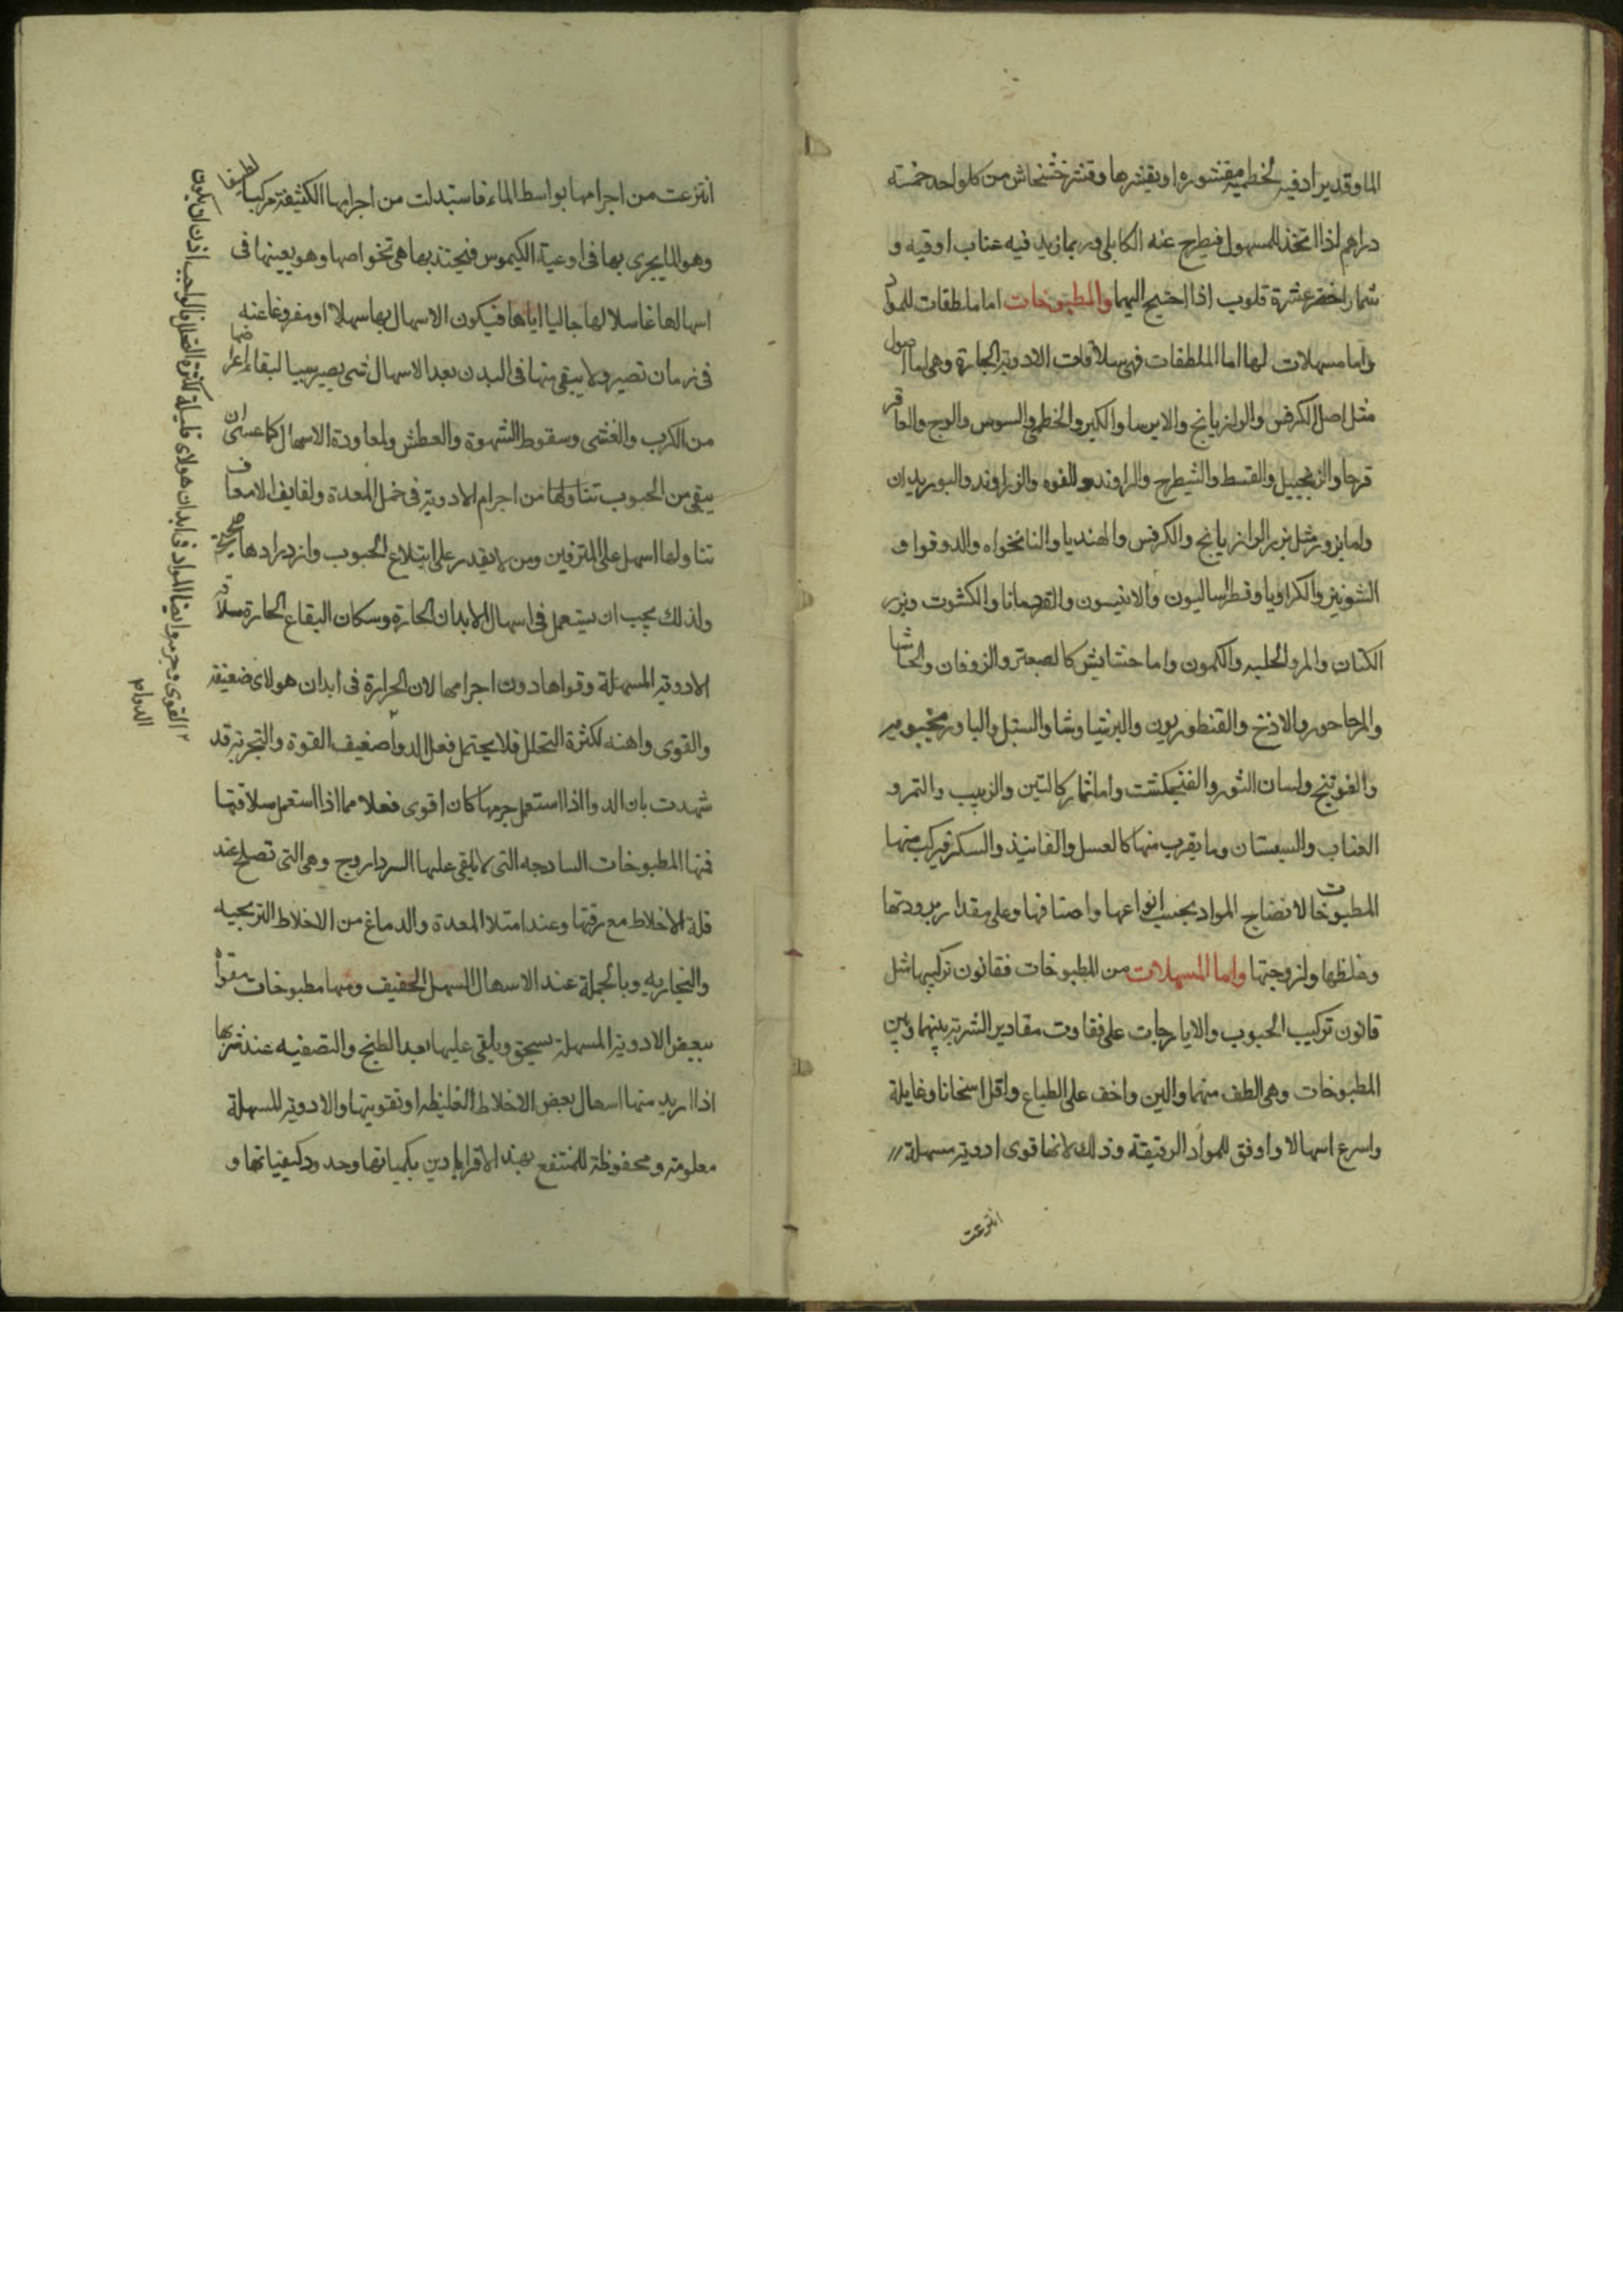 الما وقد يراد فيه الخطمية مقشوره او بقشرها وقشر خشخاش من كل واحد خمسة
دراهم اذا اتخذ للمسهول فيطرح عنه الكابلى وربما زيد فيه عناب اوقيه و
شمار اخضر عشرة قلوب اذا احتيج اليهما والمطبوخات اما ملطفات للمواد
واما مسهلات لها اما الملطفات فهى سلاقات الادوية الحارة وهى اما اصول
مثل اصل الكرفس والرازيانج والايرسا والكبر والخطمى والسوس والوج والعاقر
قرحا والزنجبيل والقسط والشيطرج والراوند والفوه والزراوند والبوزيدان
واما بزور مثل بزر الرازيانج والكرفس والهنديا والنانخواه والدوقوا و
الشونيز والكراويا وقطراساليون والانيسون والقردمانا والكشوث وبزر
الكتان والمرو الحلبه والكمون واما حشايش كالصعتر والزوفان والحاشا
والمرماحور والاذخر والقنطوريون والبرنتياوشا والسنبل والبادرنجبويه
والفوتنج ولسان الثور والفنجكشت واما ثمار كالتين والزبيب والتمر و
العناب والسبستان وما يقرب منها كالعسل والفانيذ والسكر فيركب منها
المطبوخات لانضاج المواد بحسب انواعها واصنافها وعلى مقدار برودتها
وغلظها ولزوجتها واما المسهلات من المطبوخات فقانون تركيبها مثل
قانون تركيب الحبوب والايارجات على تفاوت مقادير الشربة بينهما وبين
المطبوخات وهى الطف منهما والين واخف على الطباع واقل اسخانا وغايلة
واسرع اسهالا واوفق للمواد الرقيقة وذلك لانها قوى ادوية مسهلة
انتزعت
انتزعت من اجرامها بواسطا الماء فاستبدلت من اجرامها الكثيفة مركبا لطيفا
وهو الما يجرى بها فى اوعية الكيموس فيجتذبها هى تخواصها وهو بعينها فى
اسهالها غاسلا لها جاليا اياها فيكون الاسهال بها سهلا او مفروغا عنه
فى زمان قصير ولا يبقى منها فى البدن بعد الاسهال شى يصير سببا لبقاء اعراضها
من الكرب والغشى وسقوط الشهوة والعطش ولمعاودة الاسهال كما عسى ان
يبقى من الحبوب تناولها من اجرام الادوية فى خمل المعدة ولفايف الامعا و
تناولها اسهل على المترفين ومن لا يقدر على ابتلاع الحبوب وازدرادها
ولذلك يجب ان يستعمل فى اسهال الابدان الحارة وسكان البقاع الحارة سلاقة
الادوية المسهلة وقواها دون اجرامها لان الحرارة فى ابدان هولاى ضعيفة
والقوى واهنه لكثرة التحلل فلا يحتمل فعل الدوا ضعيف القوة والتجربة قد
شهدت بان الدوا اذا استعمل جرمها كان اقوى فعلا مما اذا استعمل سلاقتها
فمنها المطبوخات السادجه التى لا يلقى عليها السرداروج وهى التى تصلح عند
قلة الاخلاط مع رقتها وعند امتلا المعدة والدماغ من الاخلاط
والبخاريه وبالجملة عند الاسهال السهل الخفيف ومنها مطبوخات مقواه
ببعض الادوية المسهلة يسحق ويلقى عليها بعد الطبخ والتصفيه عند شربها
اذا اريد منها اسهال بعض الاخلاط الغليظه او تقويتها والادوية المسهلة
معلومة ومحفوظة للمنتفع بهذه الاقراباذين بكمياتها وحدود كيفياتها و
القوى وجرموا ايضا المواد فى ابدان هولاى قليلة لكثرة التحلل فالواجب اذن ان يكون
الدوام